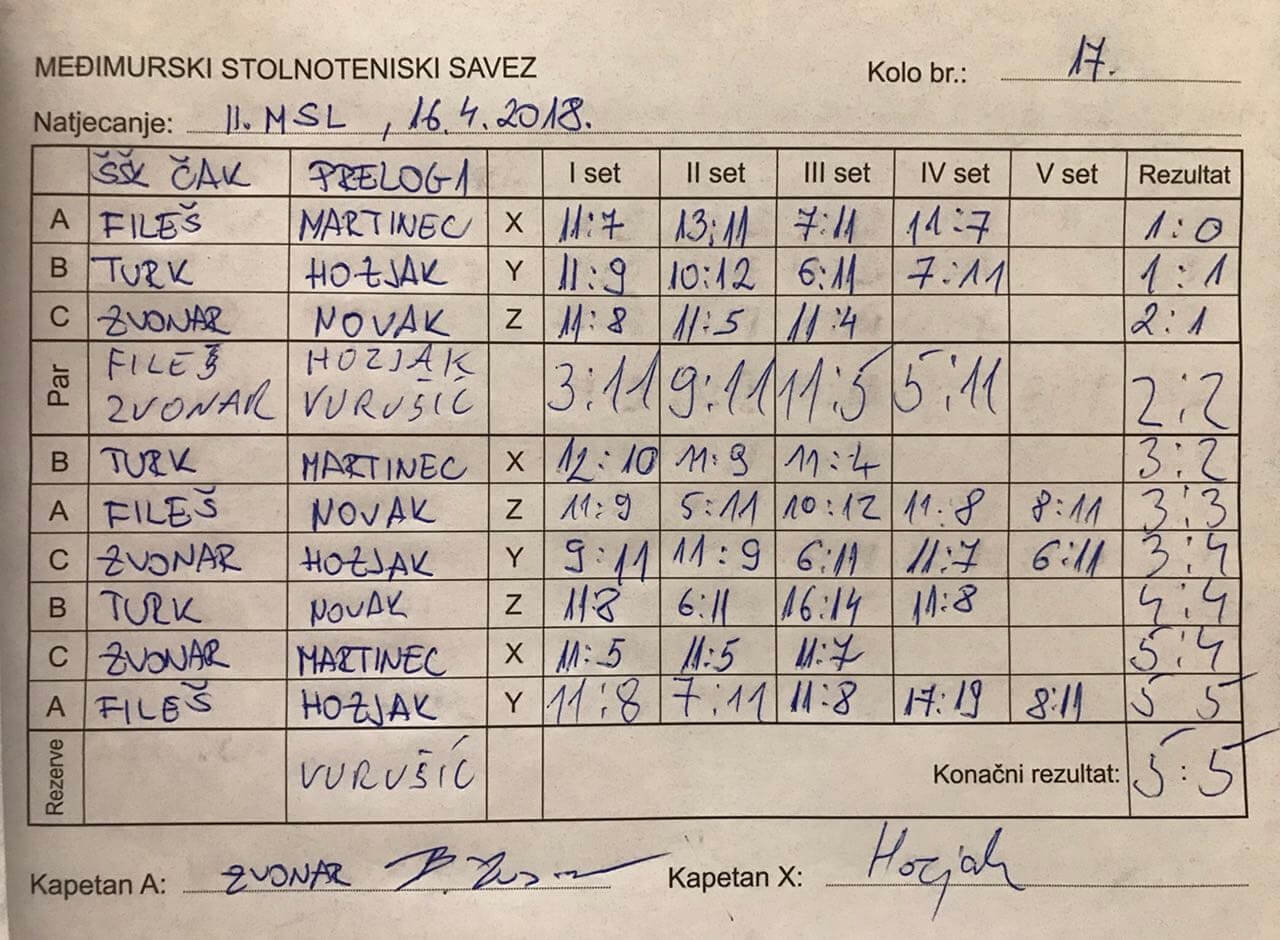 MEĐIMURSKI STOLNOTENISKI SAVEZ
Kolo br.: 17.
Natjecanje: II. MSL, 16.4.2018.
ŠŠK ČAK PRELOG 1 I set II set III set IV set V set Rezultat
A FILEŠ MARTINEC X 11:7 13:11 7:11 11:7 1:0
B TURK HOZJAK Y 11:9 10:12 6:11 7:11 1:1
C ZVONAR NOVAK Z 11:8 11:5 11:4 2:1
Par FILEŠ HOZJAK
ZVONAR VURUŠIĆ 3:11 9:11 11:5 5:11 2:2
B TURK MARTINEC X 12:10 11:9 11:4 3:2
A FILEŠ NOVAK Z 11:9 5:11 10:12 11:8 8:11 3:3
C ZVONAR HOZJAK Y 9:11 11:9 6:11 11:7 6:11 3:4
B TURK NOVAK Z 11:8 6:11 16:14 11:8 4:4
C ZVONAR MARTINEC X 11:5 11:5 11:7 5:4
A FILEŠ HOZJAK Y 11:8 7:11 11:8 17:19 8:11 5 5
Rezerve VURUŠIĆ Konačni rezultat: 5:5
Kapetan A: ZVONAR
Kapetan X: Hozjak